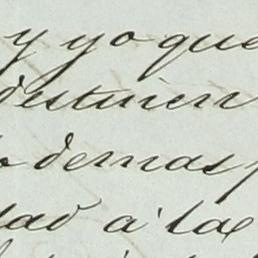 y yo que
destinen
demas
dad á las